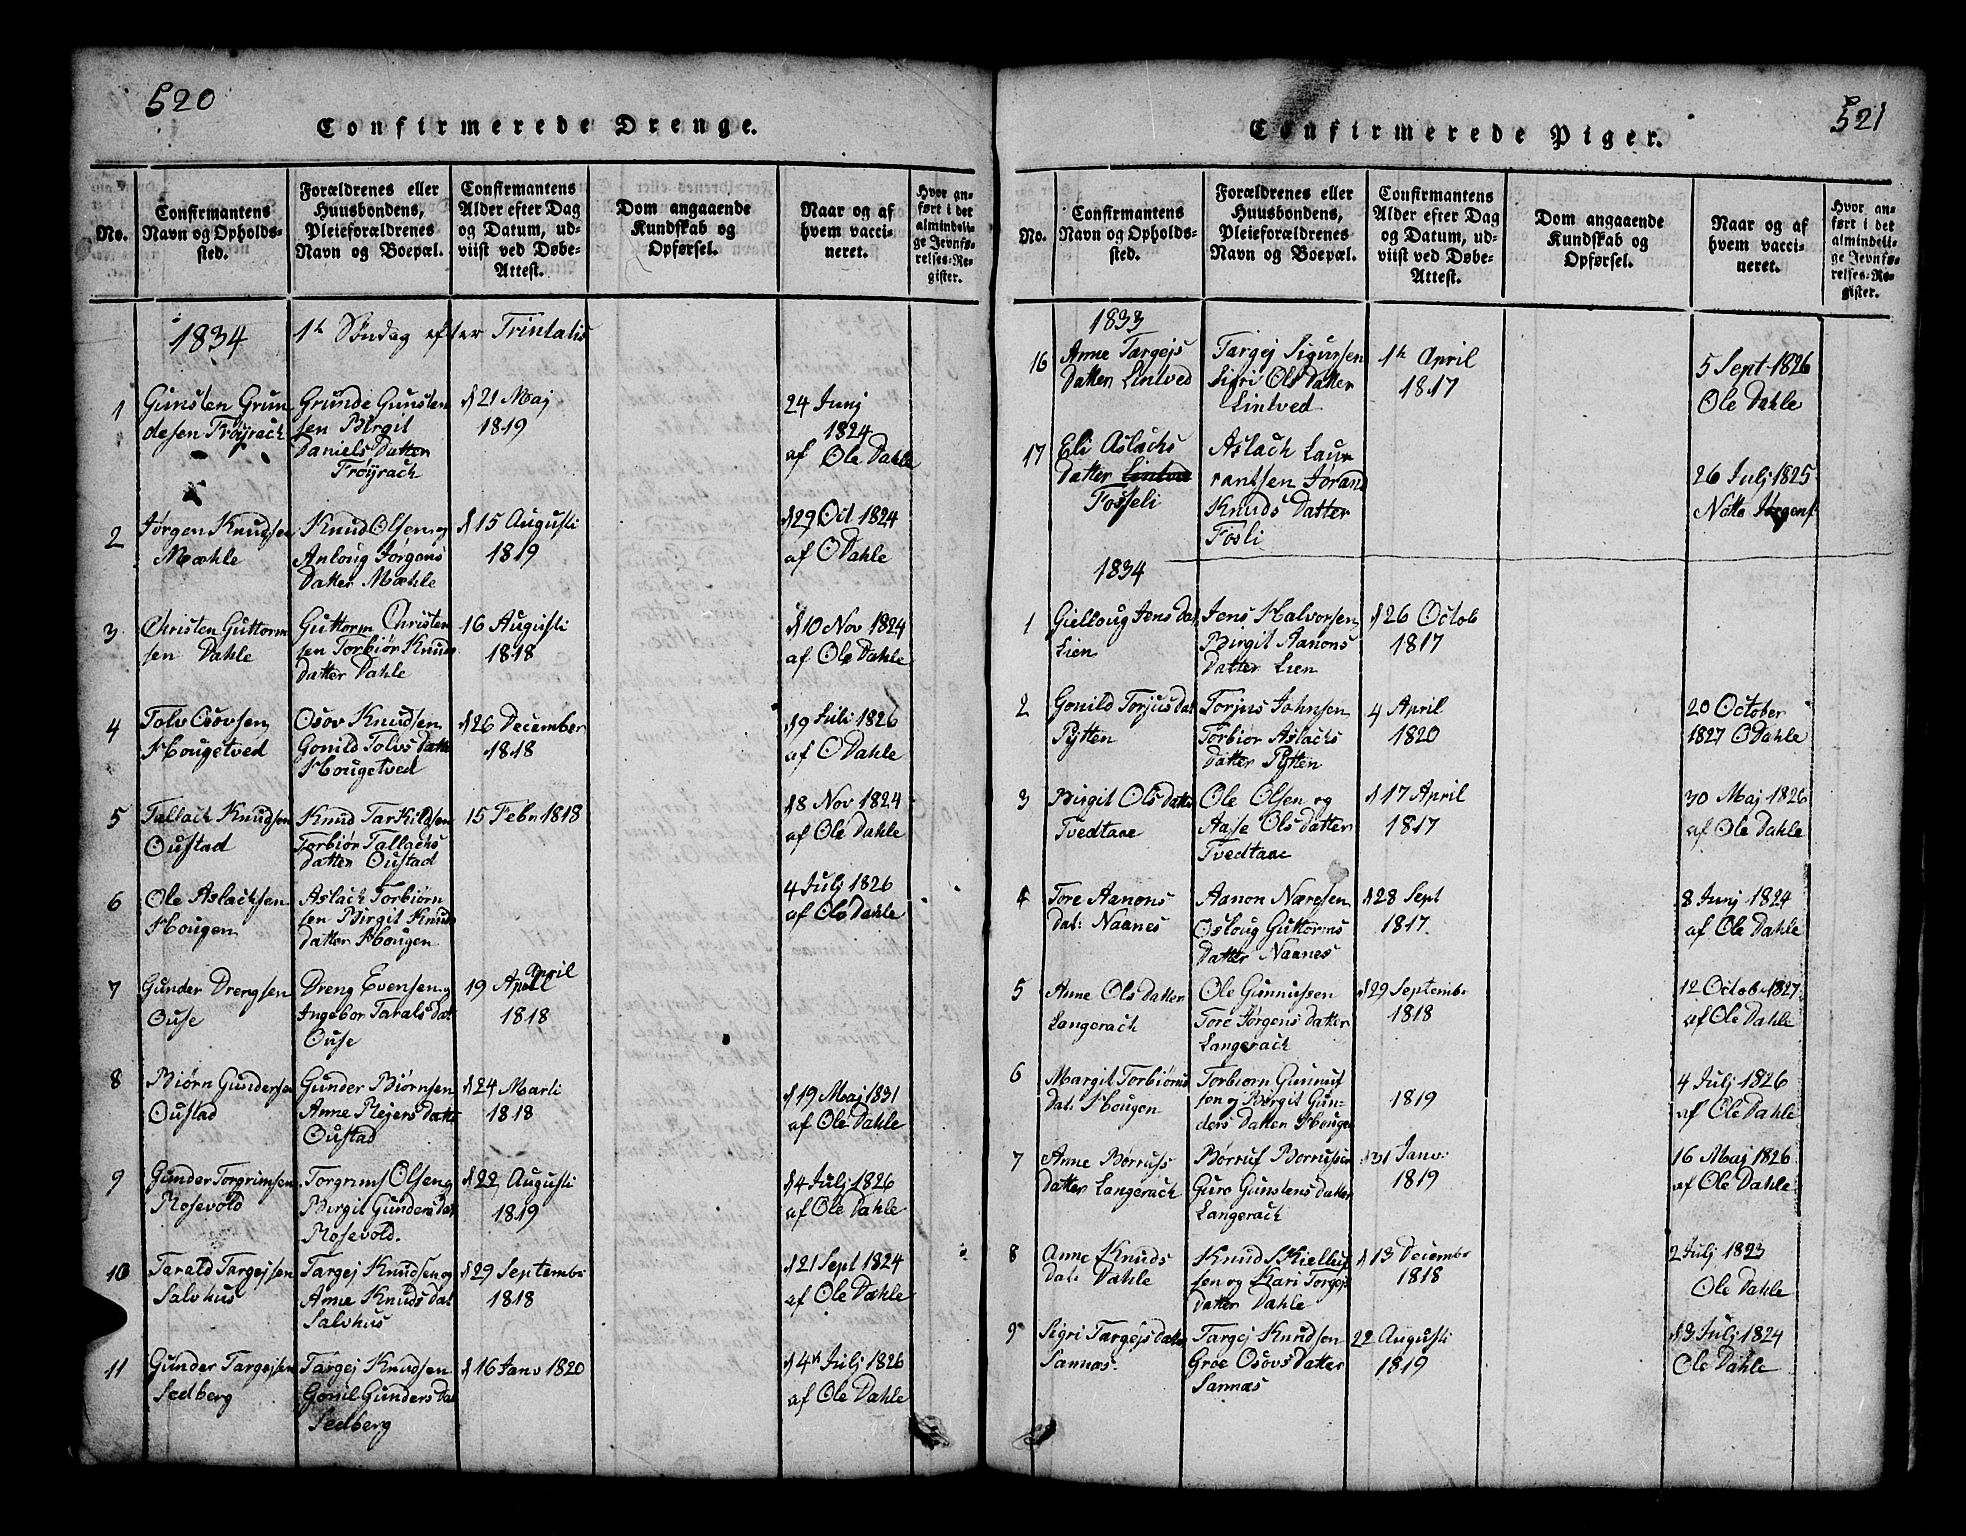 520
Confirmerede Drenge.
No.
Confirmantens Navn og Opholds-sted.
Forældrenes eller Huusbondens, Pleieforældrenes Navn og Boepæl.
Confirmantens Alder efter Dag og Datum, ud-viist ved Døbe-Attest.
Dom angaaende Kundskab og Opførsel.
Naar og af hvem vacci-neret.
Hvor an-ført i det almindeli-ge Jevnfø-relses-Re-gister.
1834 1h Søndag efter Trintatis
1 Gunsten Grun Grunde Gunsten d 21 Maj 24 Junj
desen Trøyrach sen Birgit 1819 1824
Daniels Datter af Ole Dahle
Trøyrach
2 Jørgen Knudsen Knud Olsen og d 15 Augusti d 29 Oct 1824
Mæhle Anloug Jørgens 1819 af O Dahle
Datter Mæhle
3 Christen Guttorm Guttorm Christen 16 Augusti d 10 Nov 1824
sen Dahle sen Torbiør Knuds 1818 af Ole Dahle
datter Dahle
4 Tolv Osovsen Osov Knudsen d 26 December d 9 Juli 1826
Hougetved Gonild Tolvs datt 1818 af O Dahle
Hougetved
5 Tallach Knudsen Knud Tarkildsen 15 Febr 1818 18 Nov 1824
Oustad Torbiør Tallachs af Ole Dahle
datter Oustad
6 Ole Aslachsen Aslach Torbiørn 4 Julj 1826
Hougen sen Birgit Knuds af Ole Dahle
datter Hougen
7 Gunder Drengsen Dreng Evensen og 19 April April
Ouse Ingebor Tarals dat 1818
Ouse
8 Biørn Gundersen Gunder Biørnsen d 24 Marti d 19 Maj 1831
Oustad Anne Rejers datt 1818 af Ole Dahle
Oustad
9 Gunder Torgrimsen Torgrim Olsen og d 22 Augusti d 4 Julj 1826
Rosevold Birgit Gunders dat 1819 af Ole Dahle
Rosevold.
10 Tarald Targejsen Targej Knudsen og d 29 Septembr d 21 Sept 1824
Salvhus Anne Knuds dat 1818 af Ole Dahle
Salvhus
11 Gunder Targejsen Targej Knudsen d 16 Janv 1820 d 4h Julj 1826
Sedberg Gonil Gunders dat af Ole Dahle
Sedberg
521
Confirmerede Piger.
No.
Confirmantens Navn og Opholds-sted.
Forældrenes eller Huusbondens, Pleieforældrenes Navn og Boepæl.
Confirmantens Alder efter Dag og Datum, ud-viist ved Døbe-Attest.
Dom angaaende Kundskab og Opførsel.
Naar og af hvem vacci-neret.
Hvor an-ført i det almindeli-ge Jevnfø-relses-Re-gister.
1833
16 Anne Targejs Targej Sigursen 1h April 5 Sept 1826
Datter Lintved Sigri Ols Datter 1817 Ole Dahle
Lintved
17 Eli Aslachs Aslach Laur 26 Julj 1825
Datter Lintved rantsen Jorand
Fosseli Knuds Datter
Fosli
1834
1 Gielloug Jens dat Jens Halvorsen d 26 Octob
Lien Birgit Aanons 1817
Datter Lien
2 Gonild Torjus dat Torjus Johnsen 4 April 20 October
Pytten Torbior Aslachs 1820 1827 O Dahle
datter Pytten
3 Birgit Ols datter Ole Olsen og d 17 April 30 Maj 1826
Tvedtane Aase Ols datter 1817 af Ole Dahle
Tvedtane
4 Tore Aanons Aanon Næresen d 28 Sept 8 Junj 1824
dat: Naanes Osloug Guttorms 1817 af Ole Dahle
datter Naanes
5 Anne Ols datter Ole Gunnussen d 29 Septembr 12 Octob 1827
Langerach Tore Jørgens datter 1818 af Ole Dahle
Langerach
6 Margit Torbiørns Torbiorn Gunnuf 4 Julj 1826
dat: Hougen sen og Birgit Gun- 1819 af Ole Dahle
ders datter Hougen
7 Anne Borruss Børruf Borrussen d 31 Janv: 16 Maj 1826
datter Langerach Guro Gunstens datter 1819 af Ole Dahle
Langerach
8 Anne Knuds Knud Kielluf d 13 Decembr 2 Julj 1823
dat: Dahle sen og Kari Torgejs 1818 Ole Dahle
datter Dahle
9 Sigri Targejs datter Targej Knudsen 22 Augusti d 3 Julj 1824
Sannæs Groe Osovs datter 1819 Ole Dahle
Sannæs